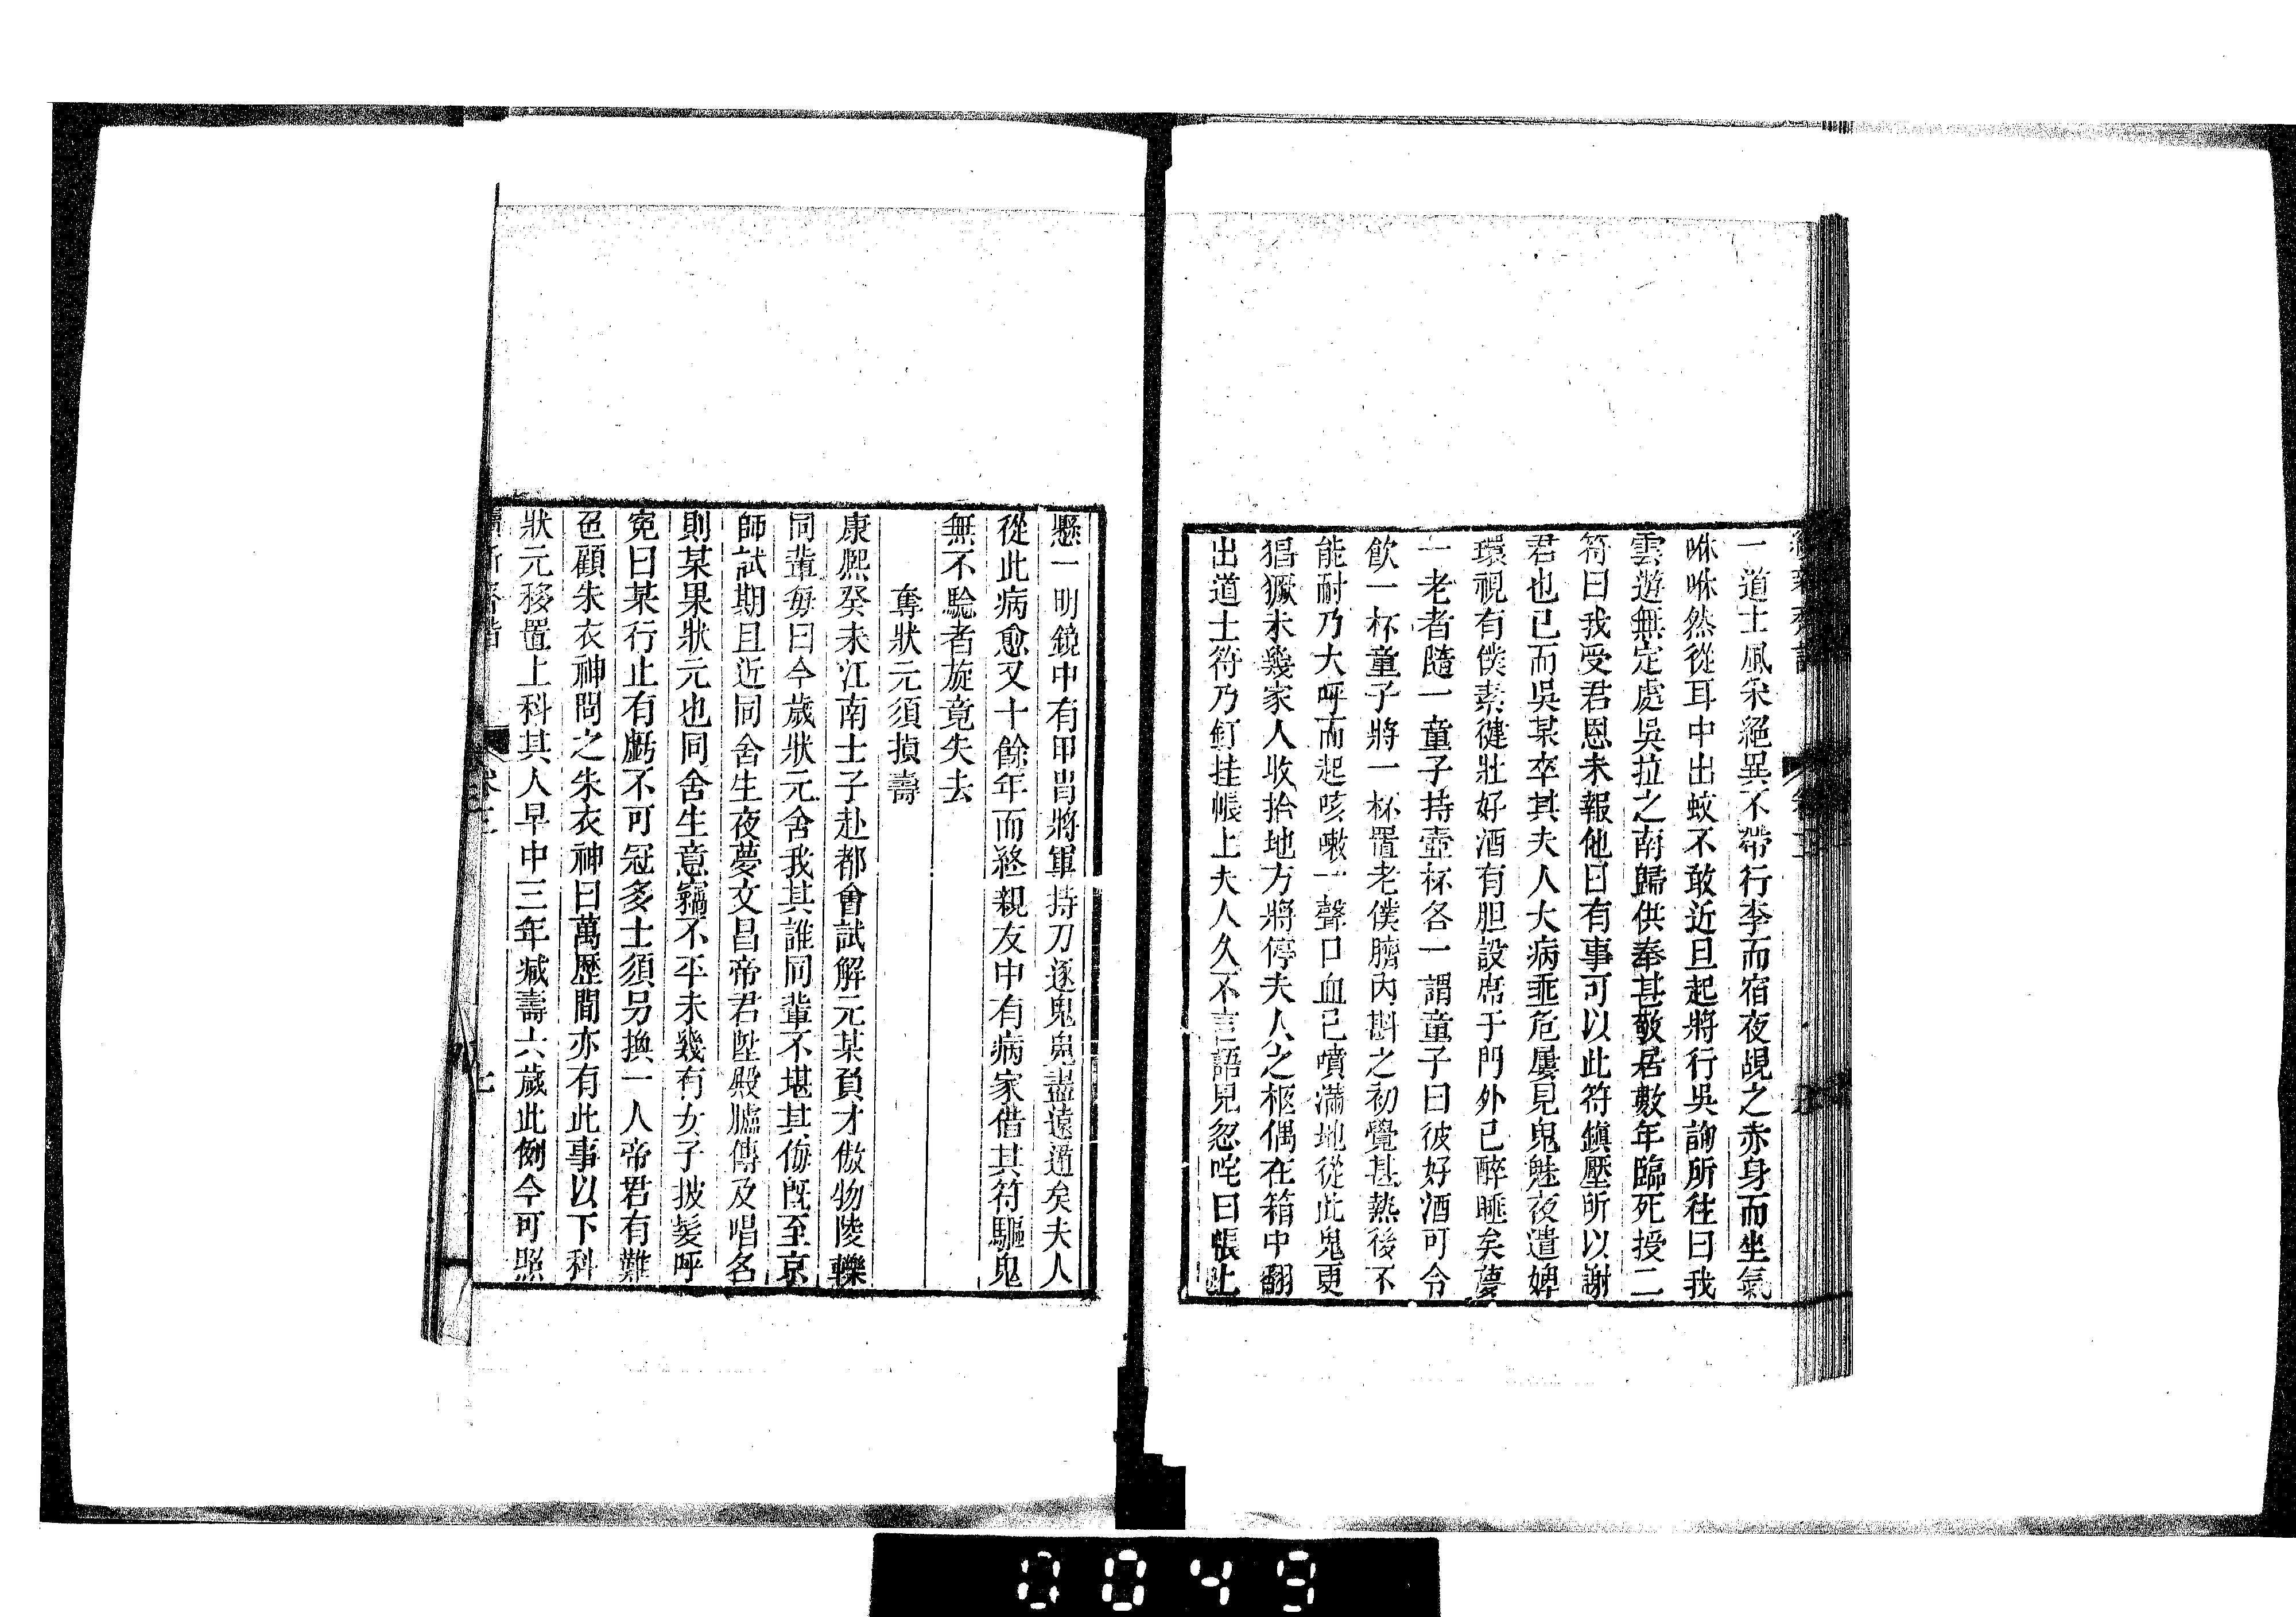 一道士風采絕異不帶行李而宿夜覘之赤身而坐氣
咻咻然從耳中出蚊不敢近旦起將行吳詢所往曰我
雲遊無定處吳拉之南歸供奉甚敬居數年臨死授二
符曰我受君恩未報他日有事可以此符鎮壓所以謝
君也已而吳某卒其夫人大病垂危屢見鬼魅夜遣婢
環視有僕素健壯好酒有胆設席于門外已醉睡矣夢
一老者隨一童子持壺杯各一謂童子曰彼好酒可令
飲一杯童子將一杯置老僕臍內斟之初覺甚熱後不
能耐乃大呼而起咳嗽一聲口血已噴滿地從此鬼更
猖獗未幾家人收拾地方將停夫人之柩偶在箱中翻
出道士符乃釘挂帳上夫人久不言語見忽咤曰帳上
懸一明鏡中有甲冑將軍持刀逐鬼鬼盡遠遁矣夫人
從此病愈又十餘年而終親友中有病家借其符驅鬼
無不驗者旋竟失去
奪狀元須損壽
康熙癸未江南士子赴都會試解元某負才傲物陵轢
同輩每曰今歲狀元舍我其誰同輩不堪其侮既至京
師試期且近同舍生夜夢文昌帝君陞殿臚傳及唱名
則某果狀元也同舍生意竊不平未幾有女子披髮呼
寃曰某行止有虧不可冠多士須另換一人帝君有難
色顧朱衣神問之朱衣神曰萬歷間亦有此事以下科
狀元移置上科其人早中三年減壽六歲此例今可照
卷三